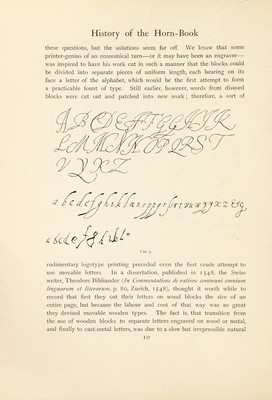 History of the Horn-Book
these questions, but the solutions seem far off. We know that some
printer-genius of an economical turn—or it may have been an engraver—
was inspired to have his work cut in such a manner that the blocks could
be divided into separate pieces of uniform length, each bearing on its
face a letter of the alphabet, which would be the first attempt to form
a practicable fount of type. Still earlier, however, words from disused
blocks were cut out and patched into new work; therefore, a sort of
rudimentary logotype printing preceded even the first crude attempt to
use movable letters. In a dissertation, published in 1548, the Swiss
writer, Theodore Bibliander (In Commentatione de ratione communi omnium
linguarum et literarum, p. 80, Zurich, 1548), thought it worth while to
record that first they cut their letters on wood blocks the size of an
entire page, but because the labour and cost of that way was so great
they devised movable wooden types. The fact is, that transition from
the use of wooden blocks to separate letters engraved on wood or metal,
and finally to cast-metal letters, was due to a slow but irrepressible natural
10